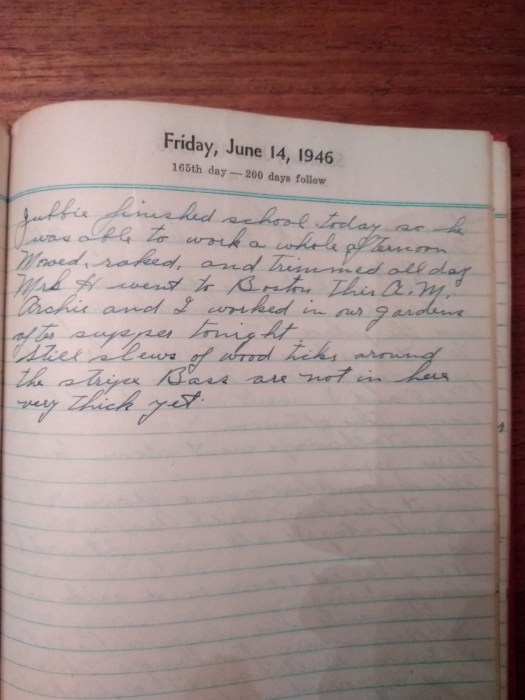 Friday, June 14, 1946
165th day — 200 days follow
Jubbie finished school today so he
was able to work a whole afternoon
Mowed, raked, and trimmed all day
Mrs H went to Boston this A.M.
Archie and I worked in our gardens
after supper tonight
Still slews of wood ticks around
the stripe Bass are not in here
very thick yet.